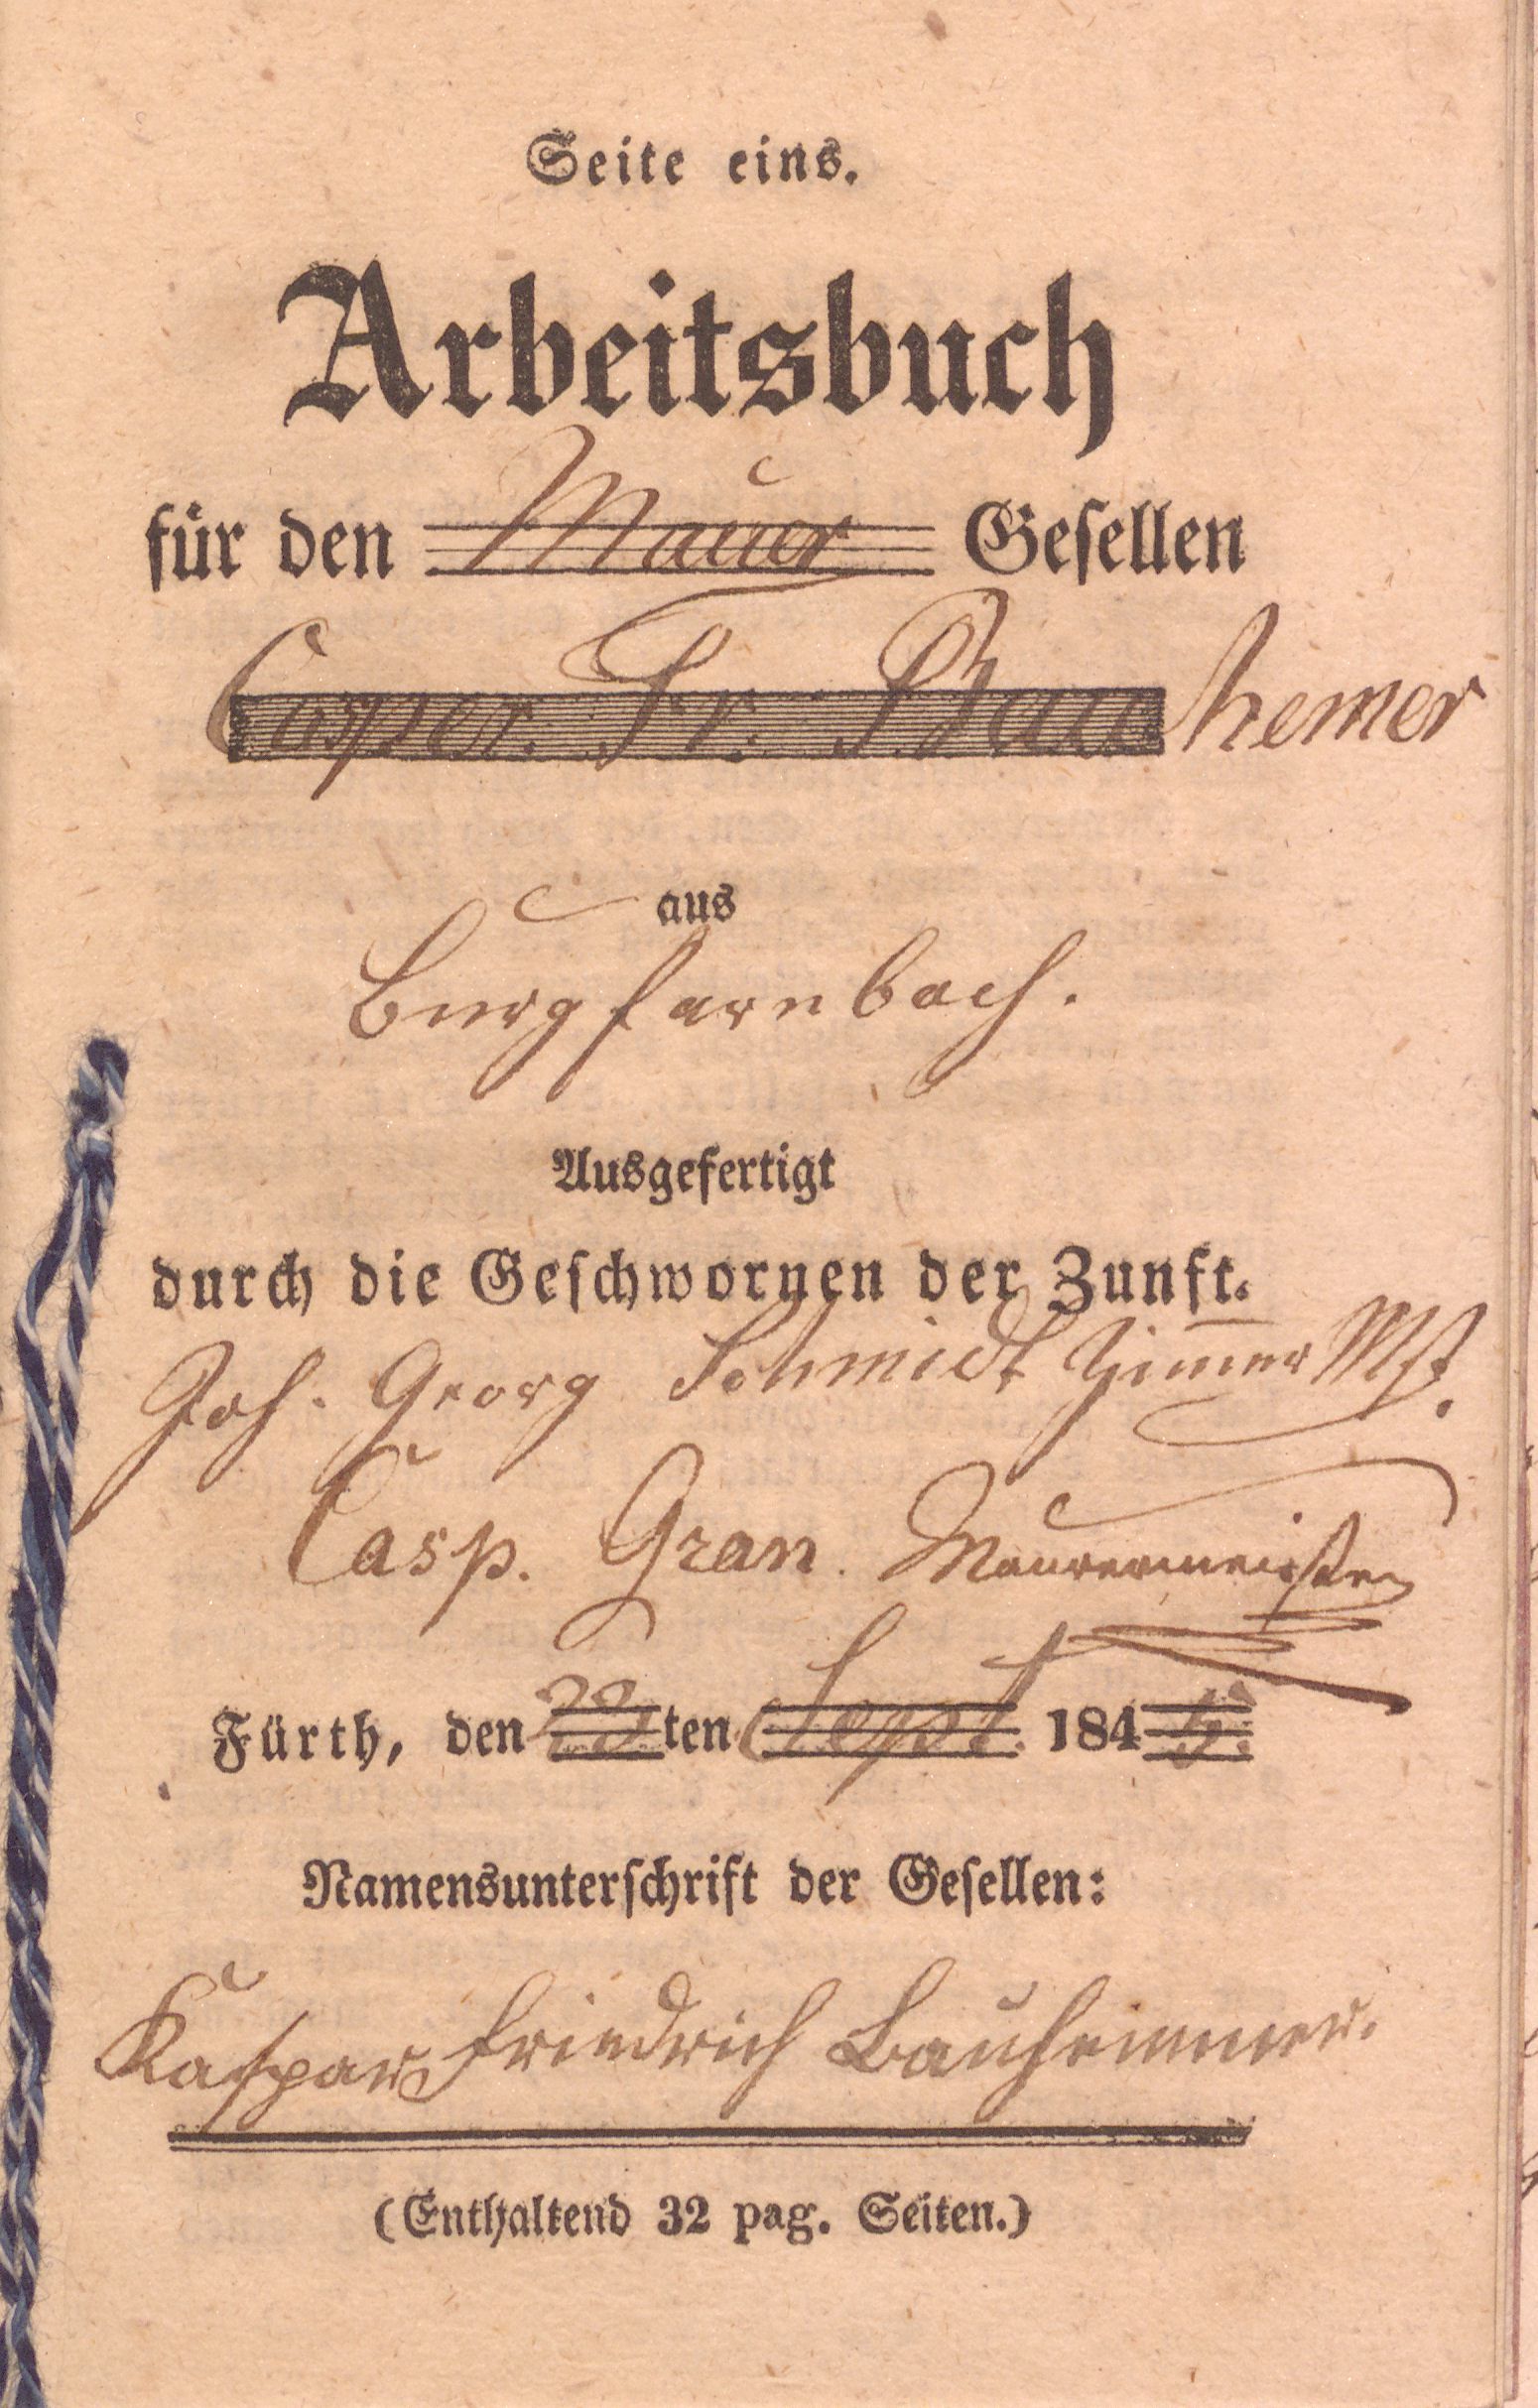 Seite eins.
Arbeitsbuch
für den Maurer Gesellen
Casper. Fr. Bauhemer
aus
Burgfarnbach.
Ausgefertigt
durch die Geschwornen der Zunft.
Joh. Georg Schmidt Zimmer Mst.
Casp. Gran. Maurermeister
Fürth, den 23ten Sept. 1845.
Namensunterschrift der Gesellen:
Kaspar Friedrich Bauheimmer.
(Enthaltend 32 pag. Seiten.)